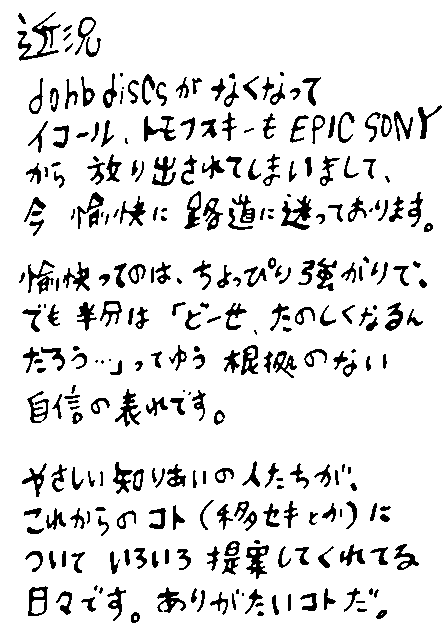 近況
dohb discsが なくなって
イコール、トモフスキーも EPIC SONY
から 放り出されてしまいまして、
今 愉快に 路道に迷っております。
愉快ってのは、ちょっぴり強がりで。
でも 半分は 「どーせ、たのしくなるん
だろう…」ってゆう 根拠のない
自信の表れです。
やさしい知りあいの人たちが、
これからのコト（移セキとか）に
ついて いろいろ 提案してくれてる
日々です。ありがたいコトだ。